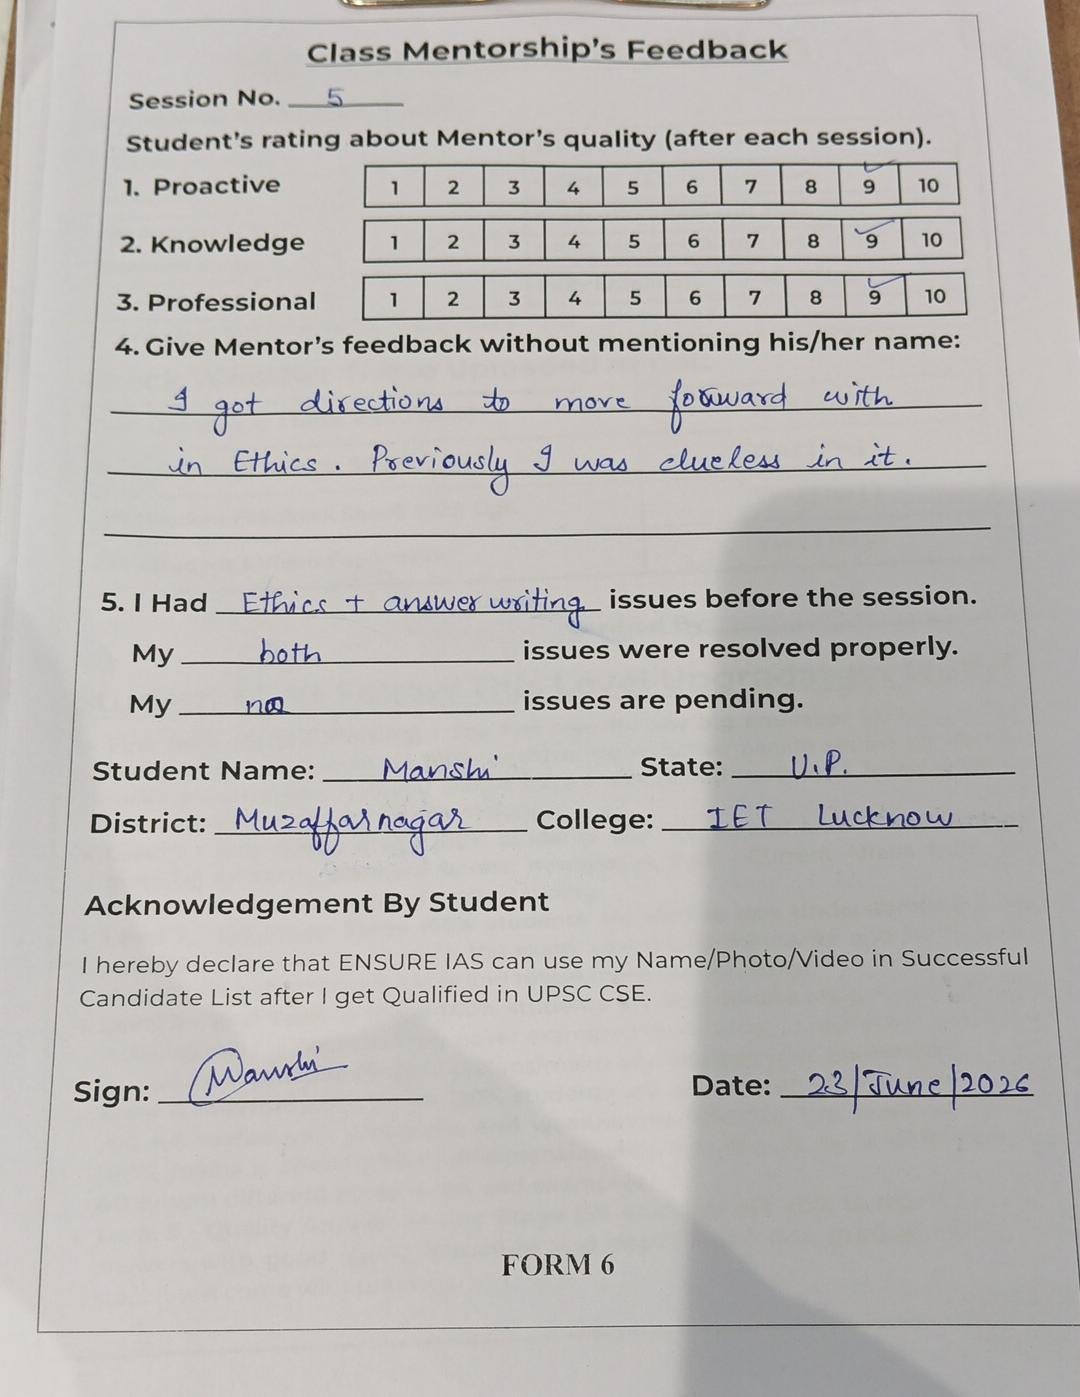 Class Mentorship's Feedback
Session No. 5
Student's rating about Mentor's quality (after each session).
1. Proactive 1 2 3 4 5 6 7 8 9 10
2. Knowledge 1 2 3 4 5 6 7 8 9 10
3. Professional 1 2 3 4 5 6 7 8 9 10
4. Give Mentor's feedback without mentioning his/her name:
I got directions to move forward with
in Ethics. Previously I was clueless in it.
5. I Had Ethics + answer writing issues before the session.
My both issues were resolved properly.
My no issues are pending.
Student Name: Manshi State: U.P.
District: Muzaffarnagar College: IET Lucknow
Acknowledgement By Student
I hereby declare that ENSURE IAS can use my Name/Photo/Video in Successful
Candidate List after I get Qualified in UPSC CSE.
Sign: Manshi Date: 23/June/2026
FORM 6